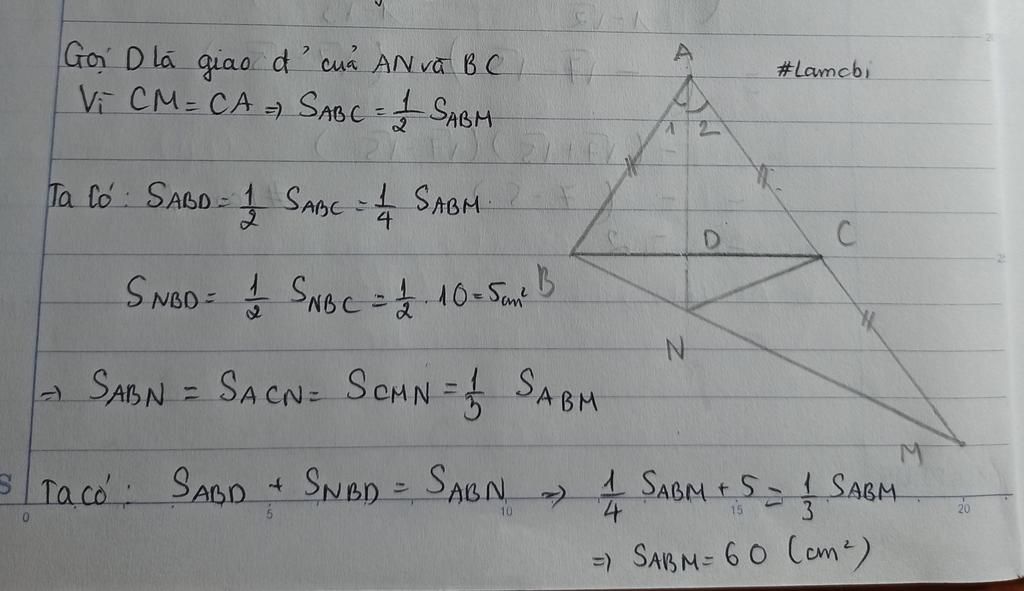 Gọi D là giao đ' của AN và BC
#Lamcbi
Vì CM = CA => SABC = 1/2 SABM
Ta có: SABD = 1/2 SABC = 1/4 SABM.
SNBD = 1/2 SNBC = 1/2 . 10 = 5cm²
=> SABN = SACN = SCMN = 1/3 SABM
Ta có: SABD + SNBD = SABN => 1/4 SABM + 5 = 1/3 SABM
=> SABM = 60 (cm²)
A
1 2
B D C
N
M
S
0 5 10 15 20